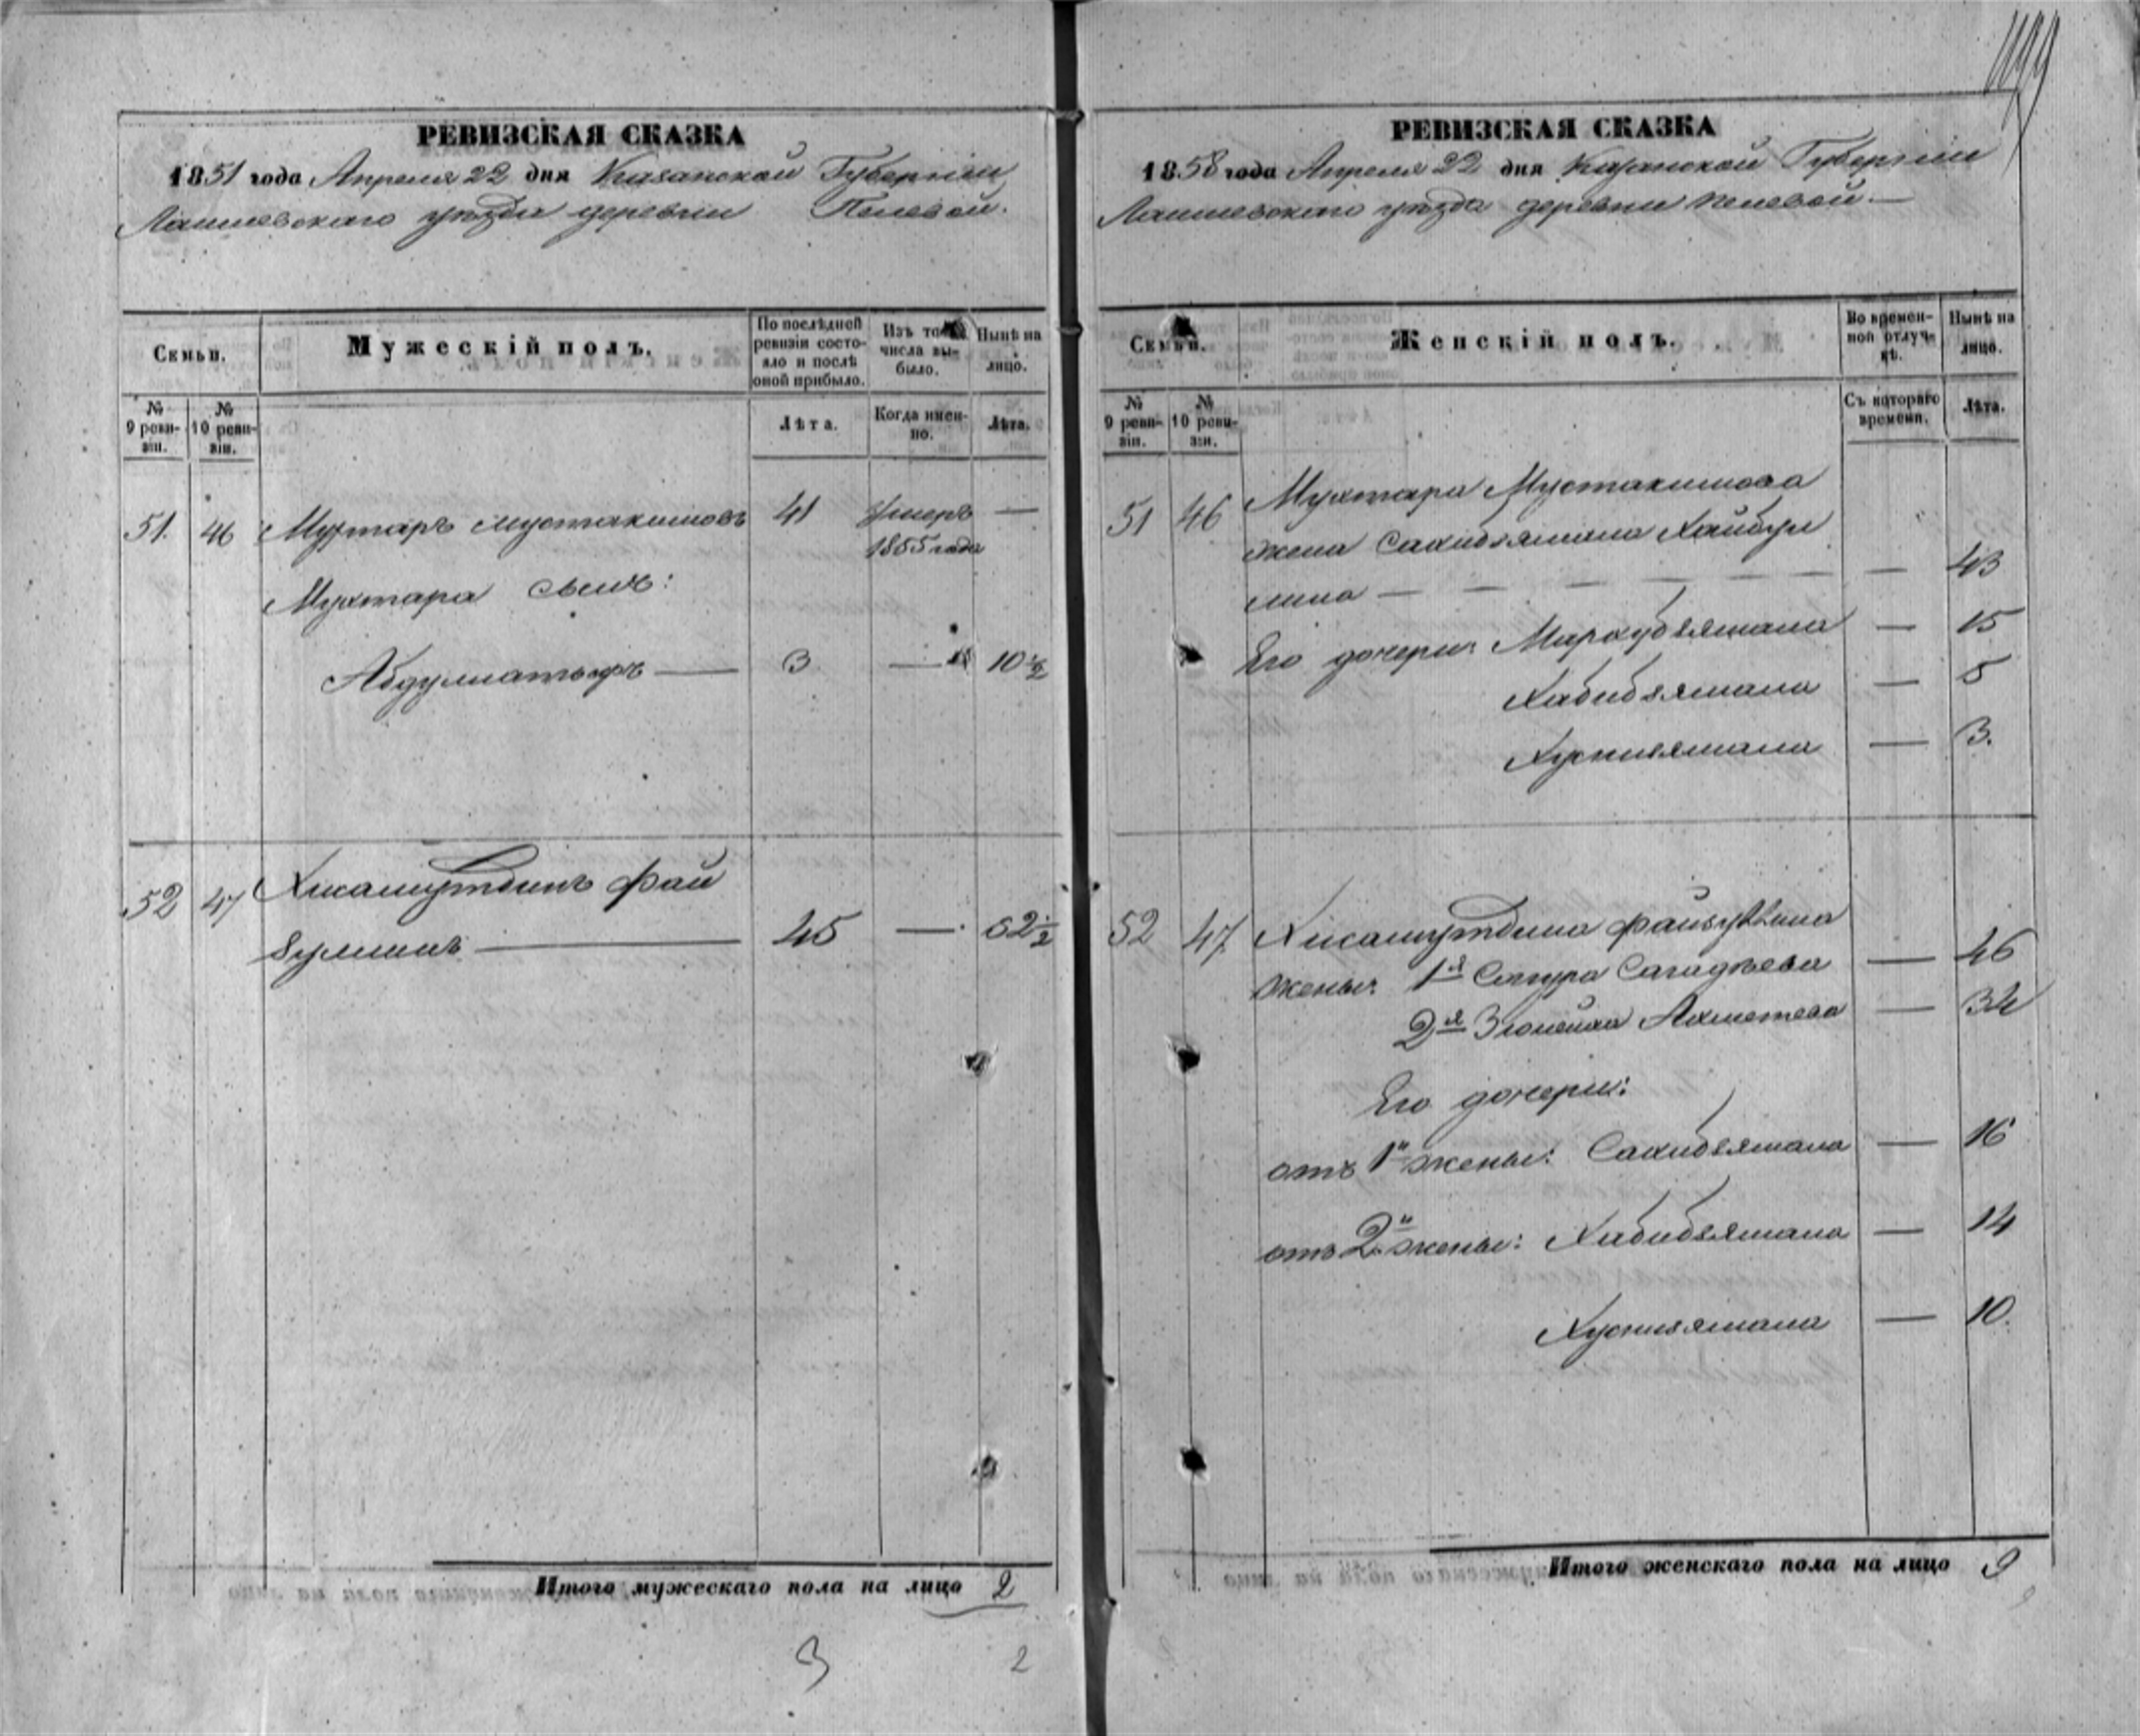 РЕВИЗСКАЯ СКАЗКА
1851 года Апреля 22 дня Казанской Губернии
Лаишевскаго уѣзда деревни Пелевой.
Семьи.
Мужескій полъ.
По послѣдней ревизіи состояло и послѣ оной прибыло.
Изъ того числа выбыло.
Нынѣ на лицо.
№ 9 ревизіи.
№ 10 ревизіи.
Лѣта.
Когда именно.
Лѣта.
51. 46 Мухтаръ Мустакимовъ 41 Умеръ —
1855 года
Мухтара сынъ:
3 — 10 ½
52 47 Хисамутдинъ Фай
зуллинъ — 45 — 62 ½
Итого мужескаго пола на лицо 2
3 2
1199
РЕВИЗСКАЯ СКАЗКА
1858 года Апреля 22 дня Казанской Губерніи
Лаишевскаго уѣзда деревни Пелевой. —
Семьи.
Женскій полъ.
Во временной отлучкѣ.
Нынѣ на лицо.
№ 9 ревизіи.
№ 10 ревизіи.
Съ котораго времени.
Лѣта.
51 46 Мухтара Мустакимова
жена Сахибзямала Хайбул
лина — — — — — 43
Его дочери: — 15
Хабибзямала — 5
Хуснизямала — 3.
52 47 Хисамутдина Файзуллина
жены: 1я Сагадѣева — 46
2я Зюлейха Ахметева — 34
Его дочери:
отъ 1й жены: Сахибзямала — 16
отъ 2й жены: Хабибзямала — 14
Хуснизямала — 10.
Итого женскаго пола на лицо 9